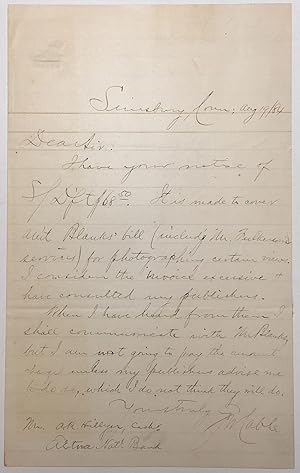 Simsbury, Conn; Aug 19/84
Dear Sir:
I have your notice of
S/Dft $168.50. It is made to cover
am't Blanks' bill (includg Mr.
service) for photographing certain views.
I consider the invoice excessive &
have consulted my publishers.
When I have heard from them I
shall communicate with Mr Blanks,
but I am not going to pay the amount
unless my publishers advise me
to do so, which I do not think they will do.
Yours truly
GW Cable
Mr. A R Hillyer, Cash'r
Aetna Nat'l Bank